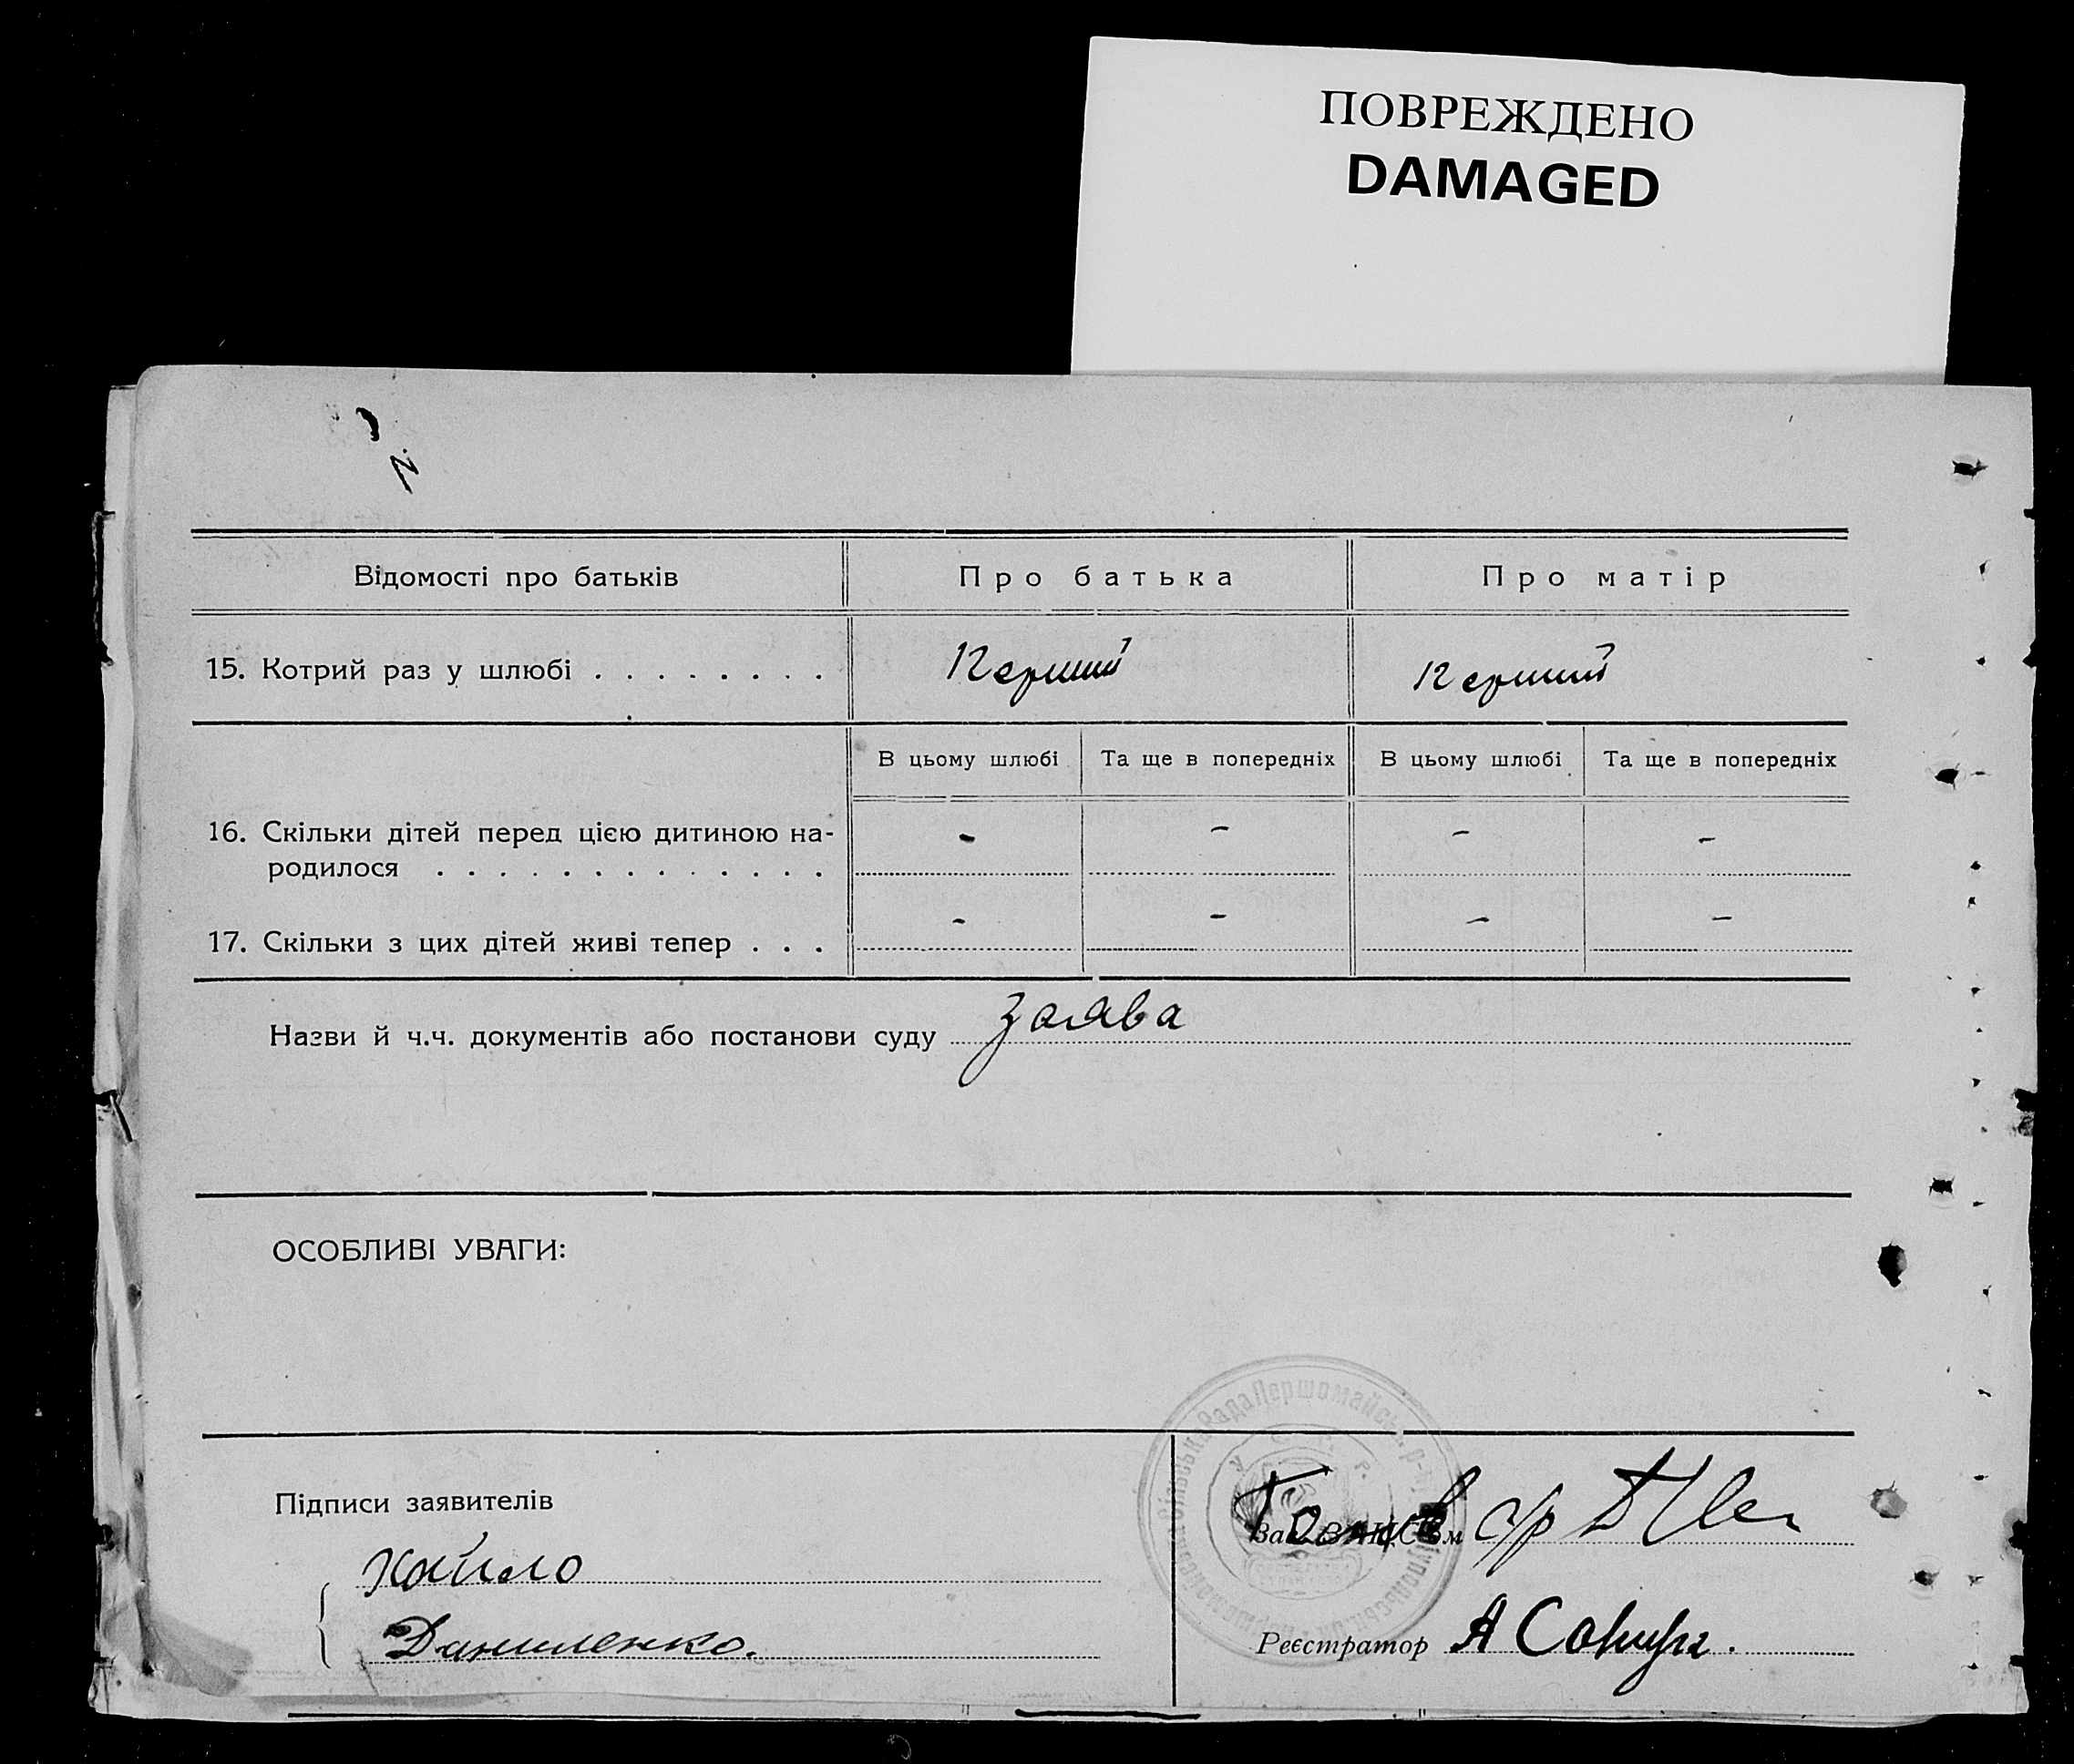 ПОВРЕЖДЕНО
DAMAGED
Відомості про батьків
Про батька
Про матір
15. Котрий раз у шлюбі . . . . . . . .
Перший
Перший
В цьому шлюбі
Та ще в попередніх
В цьому шлюбі
Та ще в попередніх
16. Скільки дітей перед цією дитиною на-
родилося . . . . . . . . . . . . .
- - - -
17. Скільки з цих дітей живі тепер . . .
- - - -
Назви й ч.ч. документів або постанови суду заява
ОСОБЛИВІ УВАГИ:
Підписи заявителів
Даниленко.
Зав. ЗАГС'ом
Голов с/р
Реєстратор А
Рада Першомайськ. р-ну